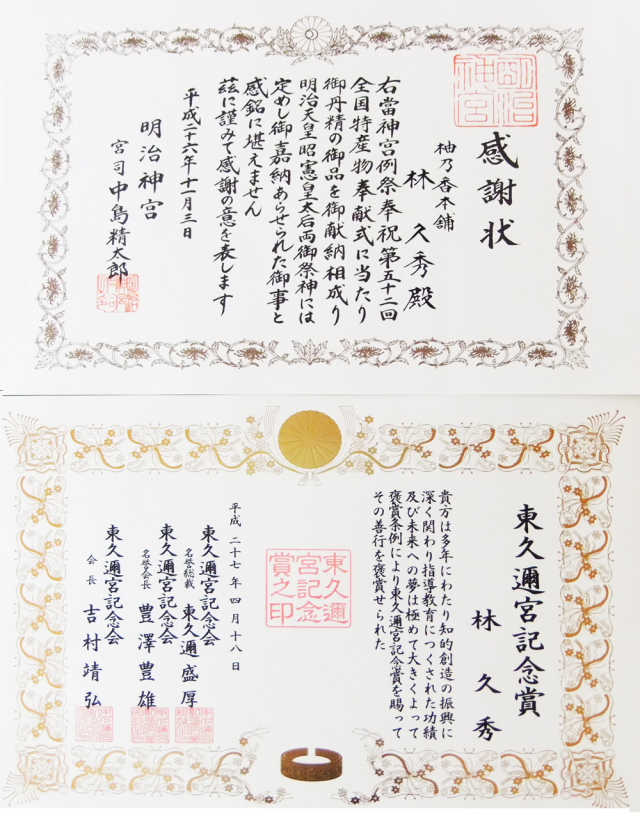 感謝状
明治
神宮
柚乃香本舗
林久秀殿
右當神宮例祭奉祝第五十二回
全国特産物奉献式に当たり
御丹精の御品を御献納相成り
明治天皇昭憲皇太后両御祭神には
定めし御嘉納あらせられた御事と
感銘に堪えません
茲に謹みて感謝の意を表します
平成二十六年十一月三日
明治神宮
宮司 中島精太郎
東久邇宮記念賞
林久秀
貴方は多年にわたり知的創造の振興に
深く関わり指導教育につくされた功績
及び未来への夢は極めて大きくよって
褒賞条例により東久邇宮記念賞を賜って
その善行を褒賞せられた
東久邇
宮記念
賞之印
平成 二十七 年 四 月 十八 日
東久邇宮記念会
名誉総裁 東久邇盛厚
東久邇宮記念会
名誉会長 豊澤豊雄
東久邇宮記念会
会長 吉村靖弘